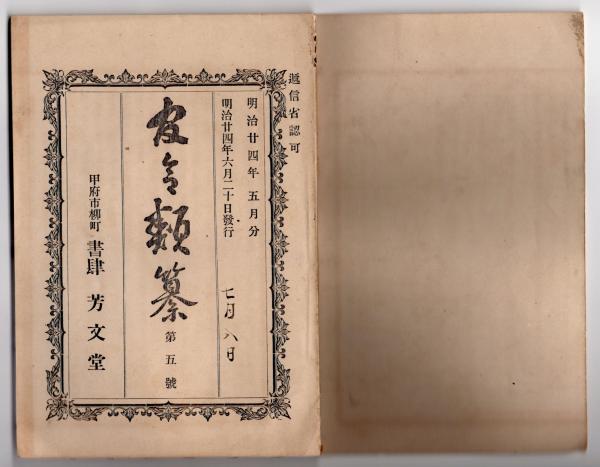 遞信省認可
明治廿四年五月分
明治廿四年六月二十日發行
七月八日
官令類纂 第五號
甲府市柳町 書肆 芳文堂